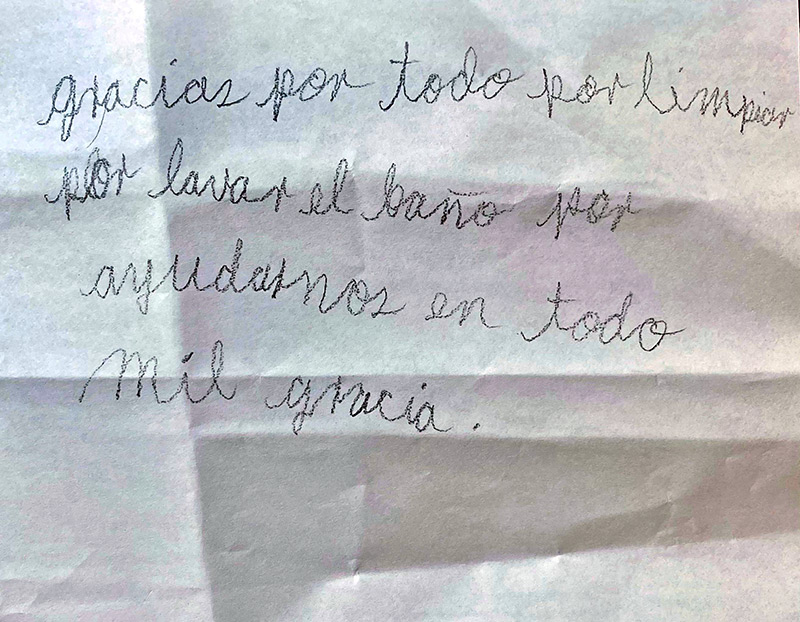 gracias por todo por limpiar
por lavar el baño por
ayudarnos en todo
Mil gracia.